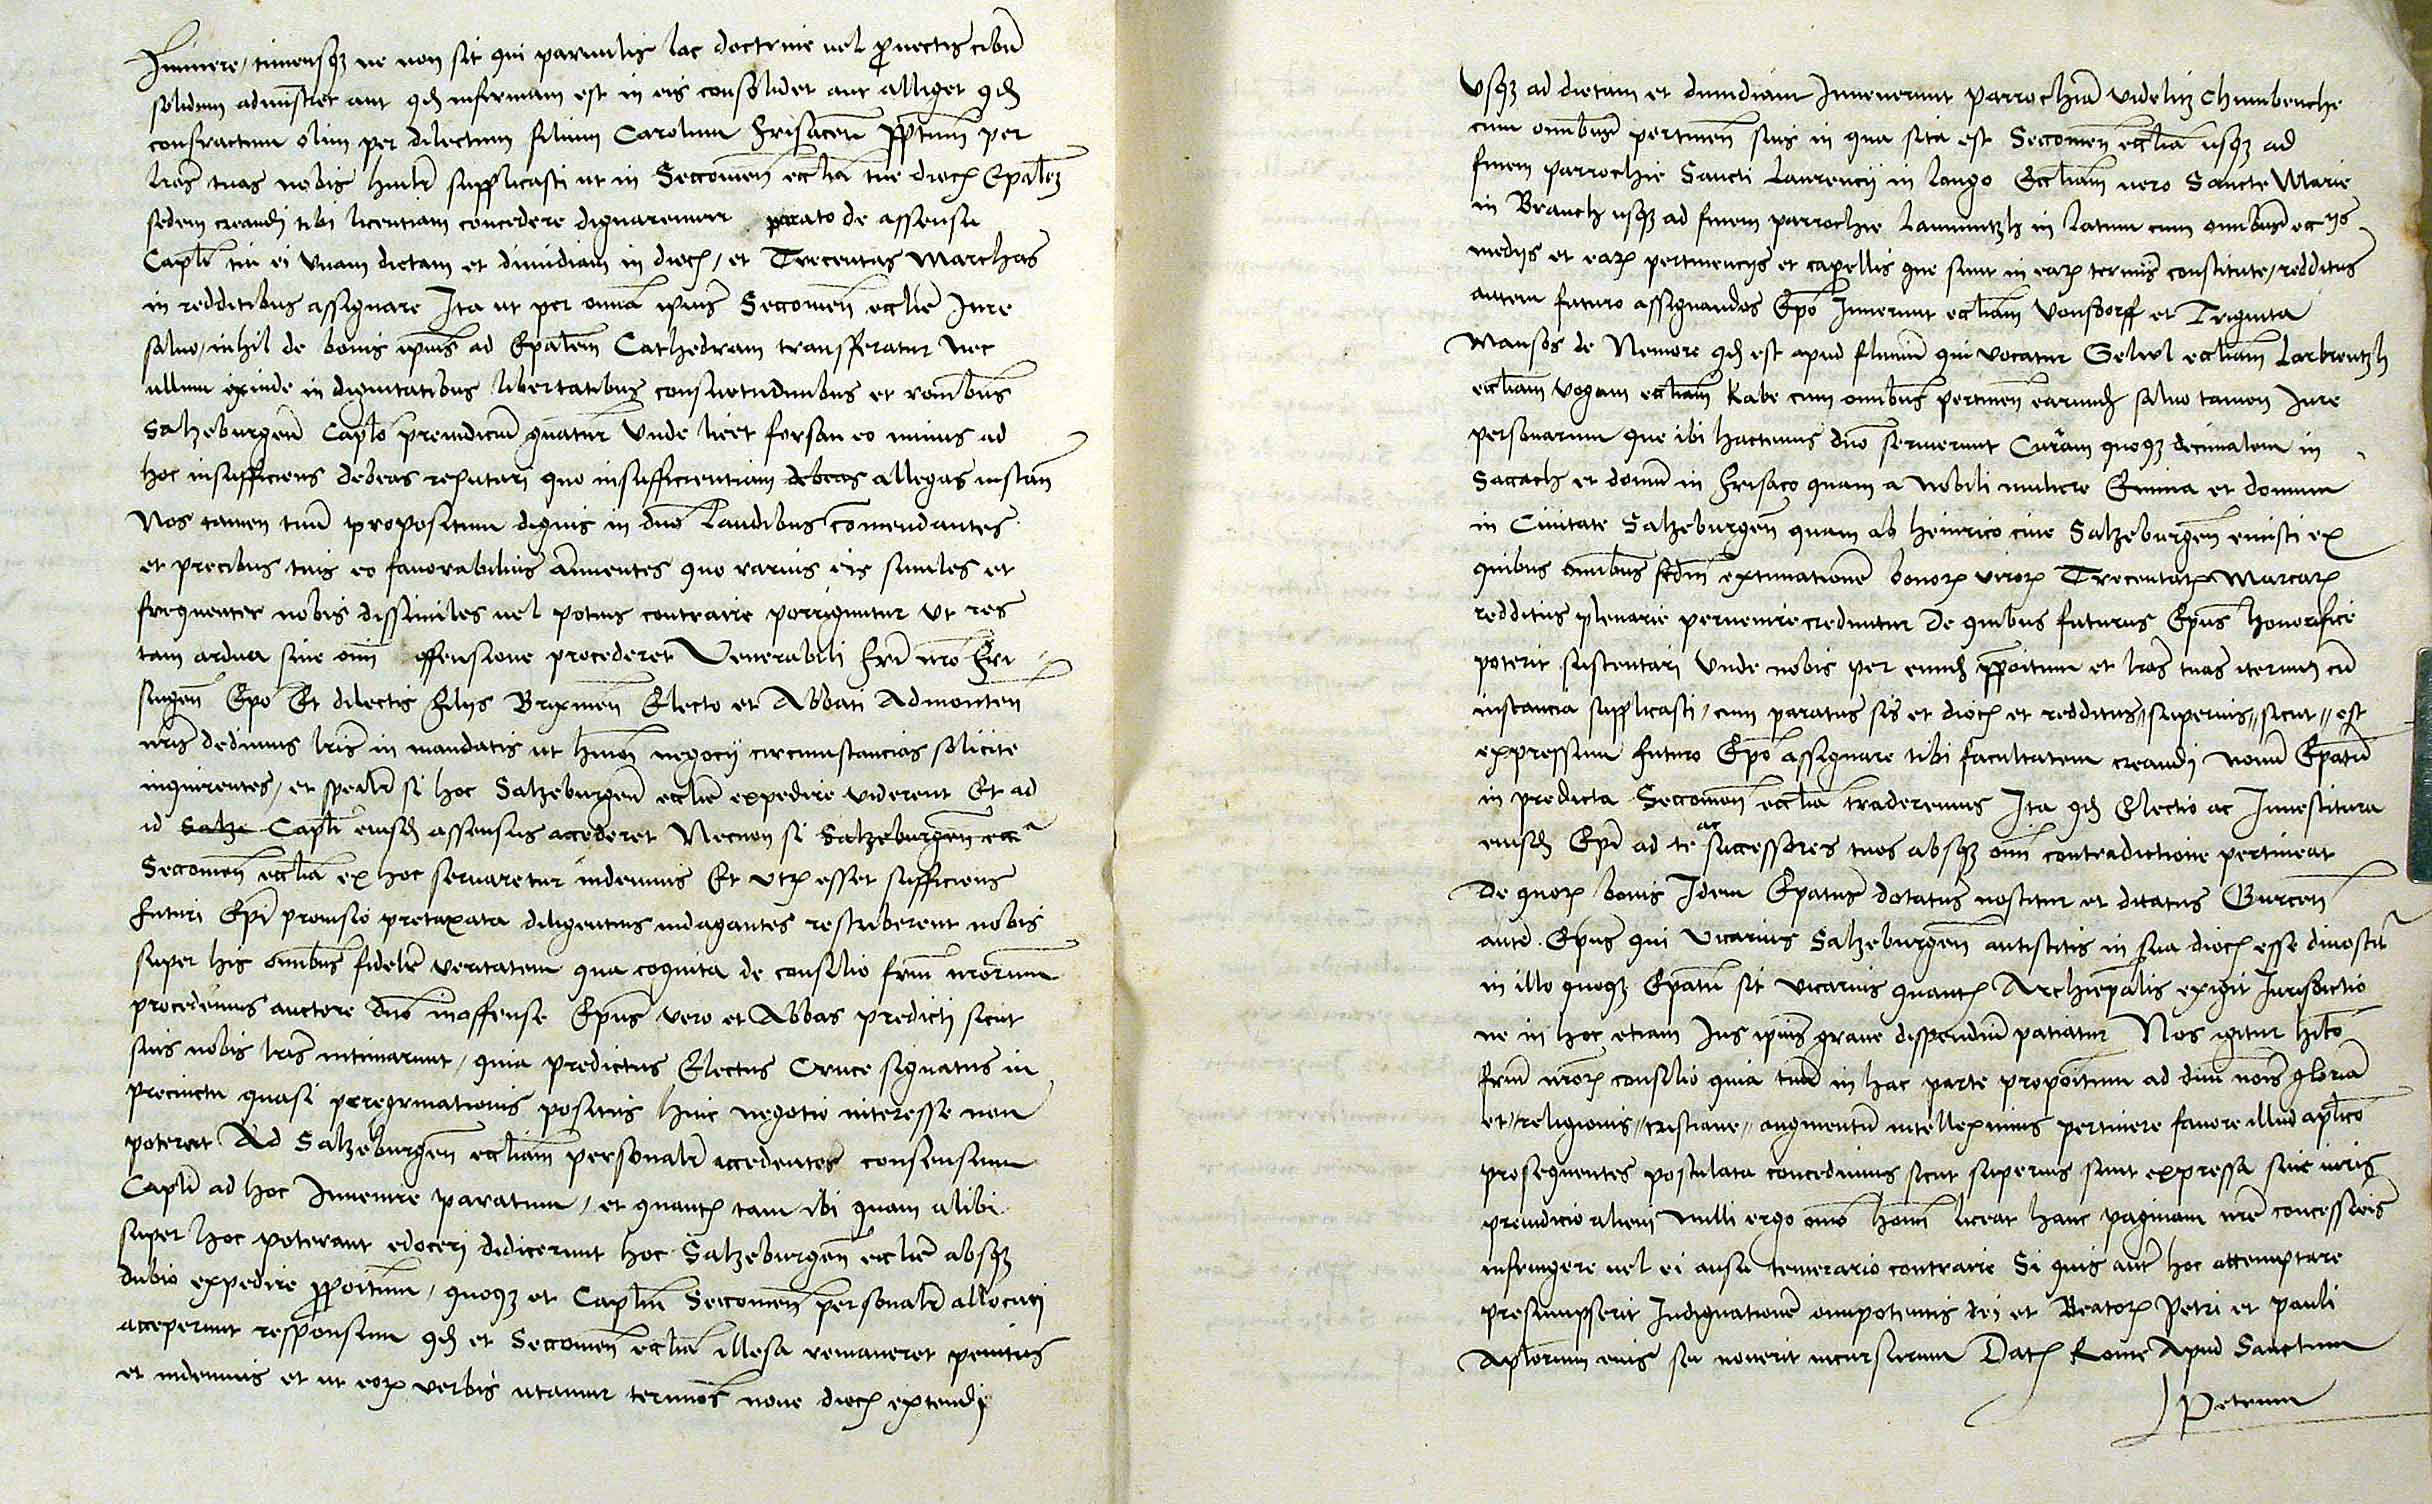 Imminere, timensq3 ne non sit qui parvulis lac doctrine vel ꝓvectis cibū
solidum administret aut qđ infirmum est in eis consolidet aut alliget qđ
confractum olim per dilectum filium Carolum Frisacen̄ p̄p̄tum̄ per
lr̄as tuas nobis hūilr̄ supplicasti ut in Seccoweñ eccl̄ia tue dioc̄ Ep̄alem
sedem creandj tibi licentiam concedere dignaremur parato de assensu
Capl̄i tui ei Unam dietam et dimidiam in dioc̄, et Trecentas Marchas
in redditibus assignare Ita ut per omīa ip̄ius Seccoweñ eccl̄ie Jure
salvo, nihil de bonis ip̄ius ad Ep̄alem Cathedram transfferatur Nec
ullum exinde in dignitatibus libertatibus consuetudinibus et rōnibus
Salzeburgeñ Capl̄o preiudiciū gn̄atur Unde licet forsan eo minus ad
hoc insufficiens debeas reputari quo insufficientiam debeas allegas instan̄
Nos tamen tuū propositum dignis in dn̄o Laudibus com̄endantes
et precibus tuis eo favorabilius Annuentes quo rarius eis similes et
frequenter nobis dissimiles vel potius contrarie porriguntur Ut res
tam ardua sine om̄i offensione procederet Venerabili fr̄i nr̄o Fri
singeñ Ep̄o Et dilectis Filijs Brixineñ Electo et Abbati Admonteñ
nr̄is dedimus lr̄is in mandatis ut hm̄oi negocij circumstancias solicite
inquirentes, et sp̄ealr̄ si hoc Salzeburgeñ eccl̄ie expedire viderent Et ad
id Salze Capl̄i eiusđ assensus accederet Necnon si Salzeburgeñ ecca
Seccoweñ eccl̄ia ex hoc servaretur indemnis Et utꝝ esset sufficiens
futuri Ep̄i provisio pretaxata diligentius indagantes rescriberent nobis
super his om̄ibus fidelē veritatem qua cognita de consilio fr̄um nr̄orum
procedemus auctore dn̄o inoffense Ep̄us vero et Abbas predicti sicut
suis nobis lr̄is intimarunt, quia predictus Electus Cruce signatus in
precinctu quasi peregrinationis positus huic negotio interesse non
poterat Ad Salzeburgeñ eccl̄iam personalr̄ accedentes consensum
Capl̄i ad hoc Invenire paratum, et quantꝫ tam ibi quam alibi
super hoc poterant edocerj didicerunt hoc Salzeburgeñ eccl̄ie absq3
dubio expedire ꝓpoitum, quoq3 et Capl̄um Seccoweñ personalr̄ allocuti
acceperunt responsum qđ et Seccoweñ eccl̄ia illesa remaneret penitus
et indemnis et ut eoꝝ verbis utamur terminos nove dioc̄ extendj
Usq3 ad dietam et dimidiam Invenerunt Parrochiā Videlitz Chumbenche
cum om̄ibus pertineñ suis in qua sita est Seccoweñ eccl̄ia usq3 ad
finem parrochie Sancti Laurencij in Lango Eccl̄iam vero Sancte Marie
in Brauch usq3 ad finem parrochie Lammintzh in Latum cum om̄ibus eccijs
medijs et eaꝝ pertinencijs et capellis que sunt in eaꝝ terminis constitute, redditus
autem futuro assignandos Ep̄o Invenerunt eccl̄iam Vonsdorff et Triginta
Mansos de Nemore qđ est apud fluviū qui vocatur Selwl eccl̄iam Larbrentzh
eccl̄iam Vogam eccl̄iam Kabe cum om̄ibus pertineñ earundꝫ salvo tamen Jure
personarum que ibi hactenus dn̄o servierunt Curam quoq3 decimalem in
Saccach et domū in Frisaco quam a Nobili muliere Emma et domum
in Civitate Salzeburgeñ quam ab Heinrico cive Salzeburgeñ emisti ex
quibus om̄ibus scd̄m extimationē bonoꝝ viroꝝ Trecentaꝝ Marcaꝝ
redditus plenarie pervenire creduntur De quibus futurus Ep̄us honorifice
poterit sustentari Unde nobis per eundꝫ p̄p̄oitum et lr̄as tuas iterum cū
instancia supplicasti, cum paratus sis et dioc̄ et redditus superius sicut est
expressum Futuro Ep̄o assignare tibi facultatem creandj novū Ep̄atū
in predicta Seccoweñ eccl̄ia traderemus Ita qđ Electio ac Investitura
eiusđ Ep̄i ad te ac successores tuos absq3 om̄i contradictione pertineat
De quoꝝ bonis Idem Ep̄atus dotatus noscitur et ditatus Gurceñ
autē Ep̄us qui Vicarius Salzeburgeñ antistitis in sua dioc̄ esse dinoscitr̄
in illo quoq3 Ep̄atu sit vicarius quantꝫ Archiep̄alis exigit Jurisdictio
ne in hoc etiam Jus ip̄ius grave dispendiū patiatur Nos igitur hīto
fr̄um nr̄oꝝ consilio quia tuū in hac parte propoitum ad diui nōis gloriā
et religionis cristiane augmentū intelleximus pertinere favore illud ap̄lico
prosequentes postulata concedimus sicut superius sunt expressa sine iuris
preiudicio alieni Nulli ergo om̄o homī liceat hanc paginam nr̄e concessiōis
infringere vel ei ausu temerario contraire Si quis autē hoc attemptare
presumpserit Indignationē omnipotentis dei et Beatoꝝ Petri et Pauli
Apl̄orum eius se noverit incursurum Datꝫ Rome Apud Sanctum
Petrum